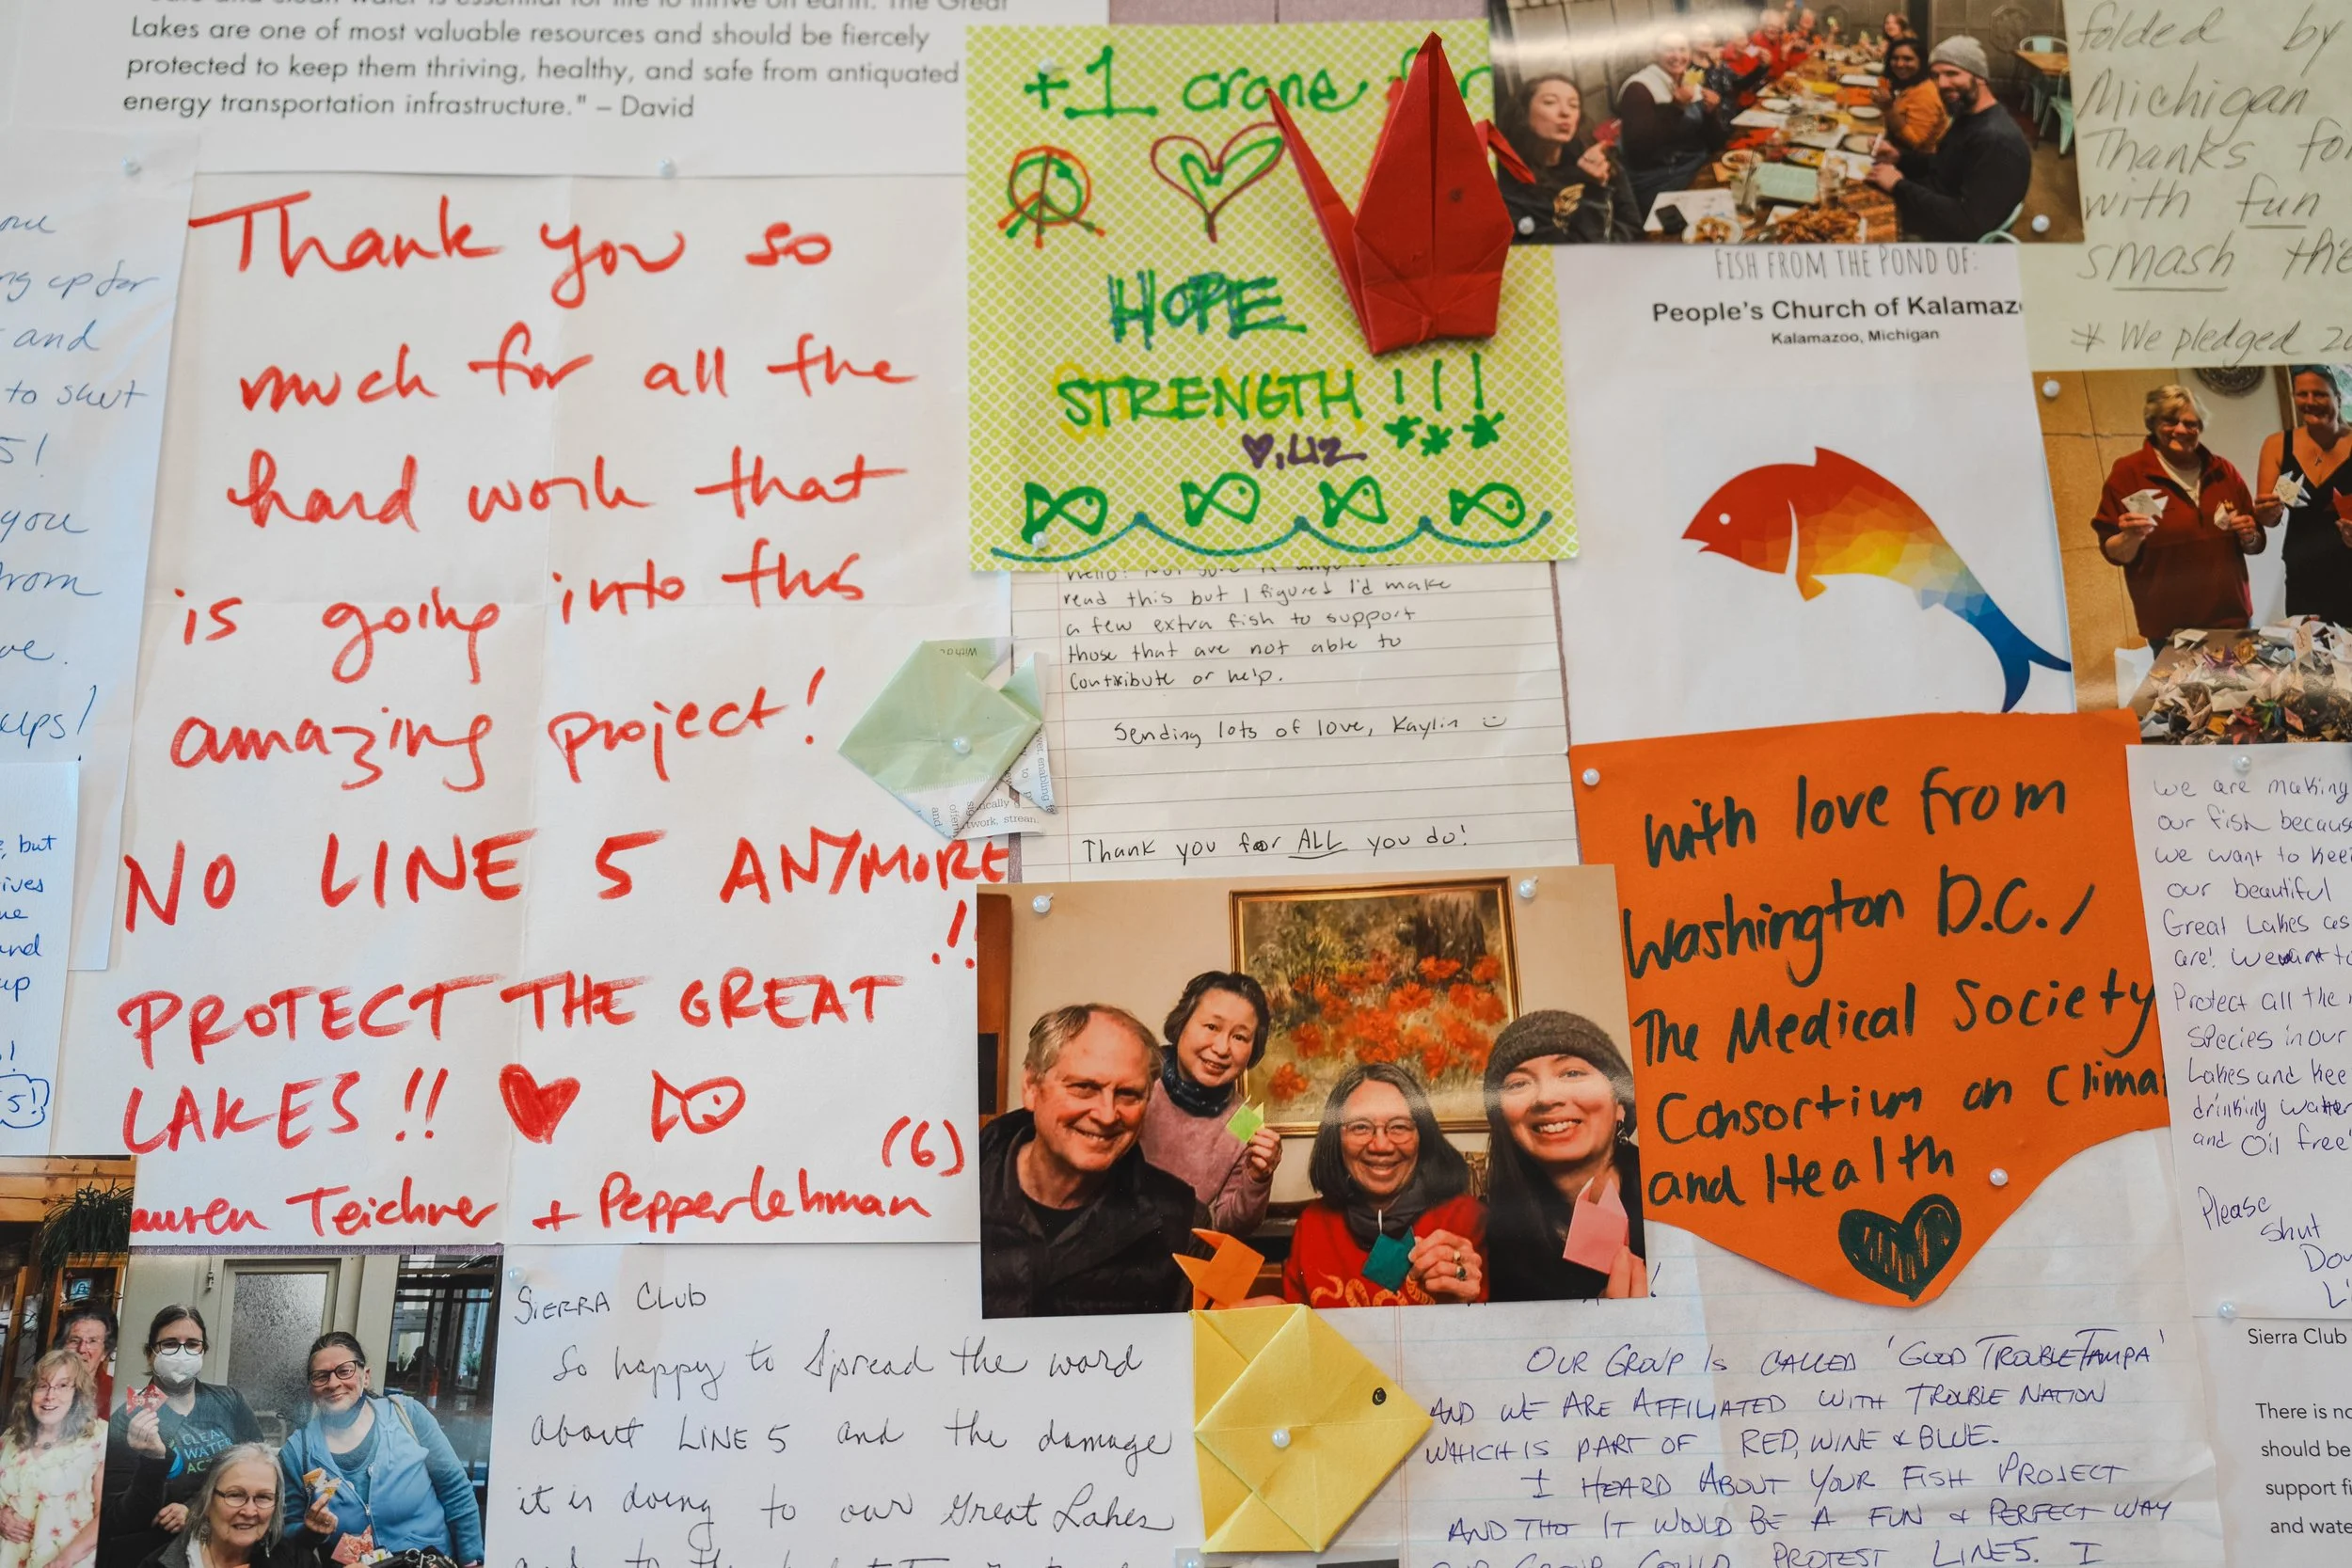 Lakes are one of most valuable resources and should be fiercely
protected to keep them thriving, healthy, and safe from antiquated
energy transportation infrastructure." – David
up for
and
to shut
5!
you
Thank you so
much for all the
hard work that
is going into this
amazing project!
NO LINE 5 ANYMORE
!!
PROTECT THE GREAT
LAKES!!
(6)
Teichner + Pepper Lehman
but
and
up
5!
+1 crane
HOPE
STRENGTH!!!
LIZ
read this but I figured I'd make
a few extra fish to support
those that are not able to
contribute or help.
Sending lots of love, Kaylin
Thank you for ALL you do!
folded by
Michigan
Thanks for
with fun
smash the
* We pledged
FISH FROM THE POND OF:
People's Church of
Kalamazoo, Michigan
with love from
Washington D.C. /
The Medical Society
Consortium on
and Health
we are making
our fish
we want to
our beautiful
Great Lakes as
are!
Protect all the
species in our
Lakes and
drinking water
and Oil free
Please
Shut
CLEAN
WATER
SIERRA CLUB
So happy to Spread the word
about LINE 5 and the damage
it is doing to our Great Lakes
OUR GROUP IS CALLED 'GOOD TROUBLE TAMPA'
AND WE ARE AFFILIATED WITH TROUBLE NATION
WHICH IS PART OF RED, WINE & BLUE.
I HEARD ABOUT YOUR FISH PROJECT
AND THOT IT WOULD BE A FUN & PERFECT WAY
OUR GROUP COULD PROTEST LINE 5. I
Sierra Club
There is
should be
support
and